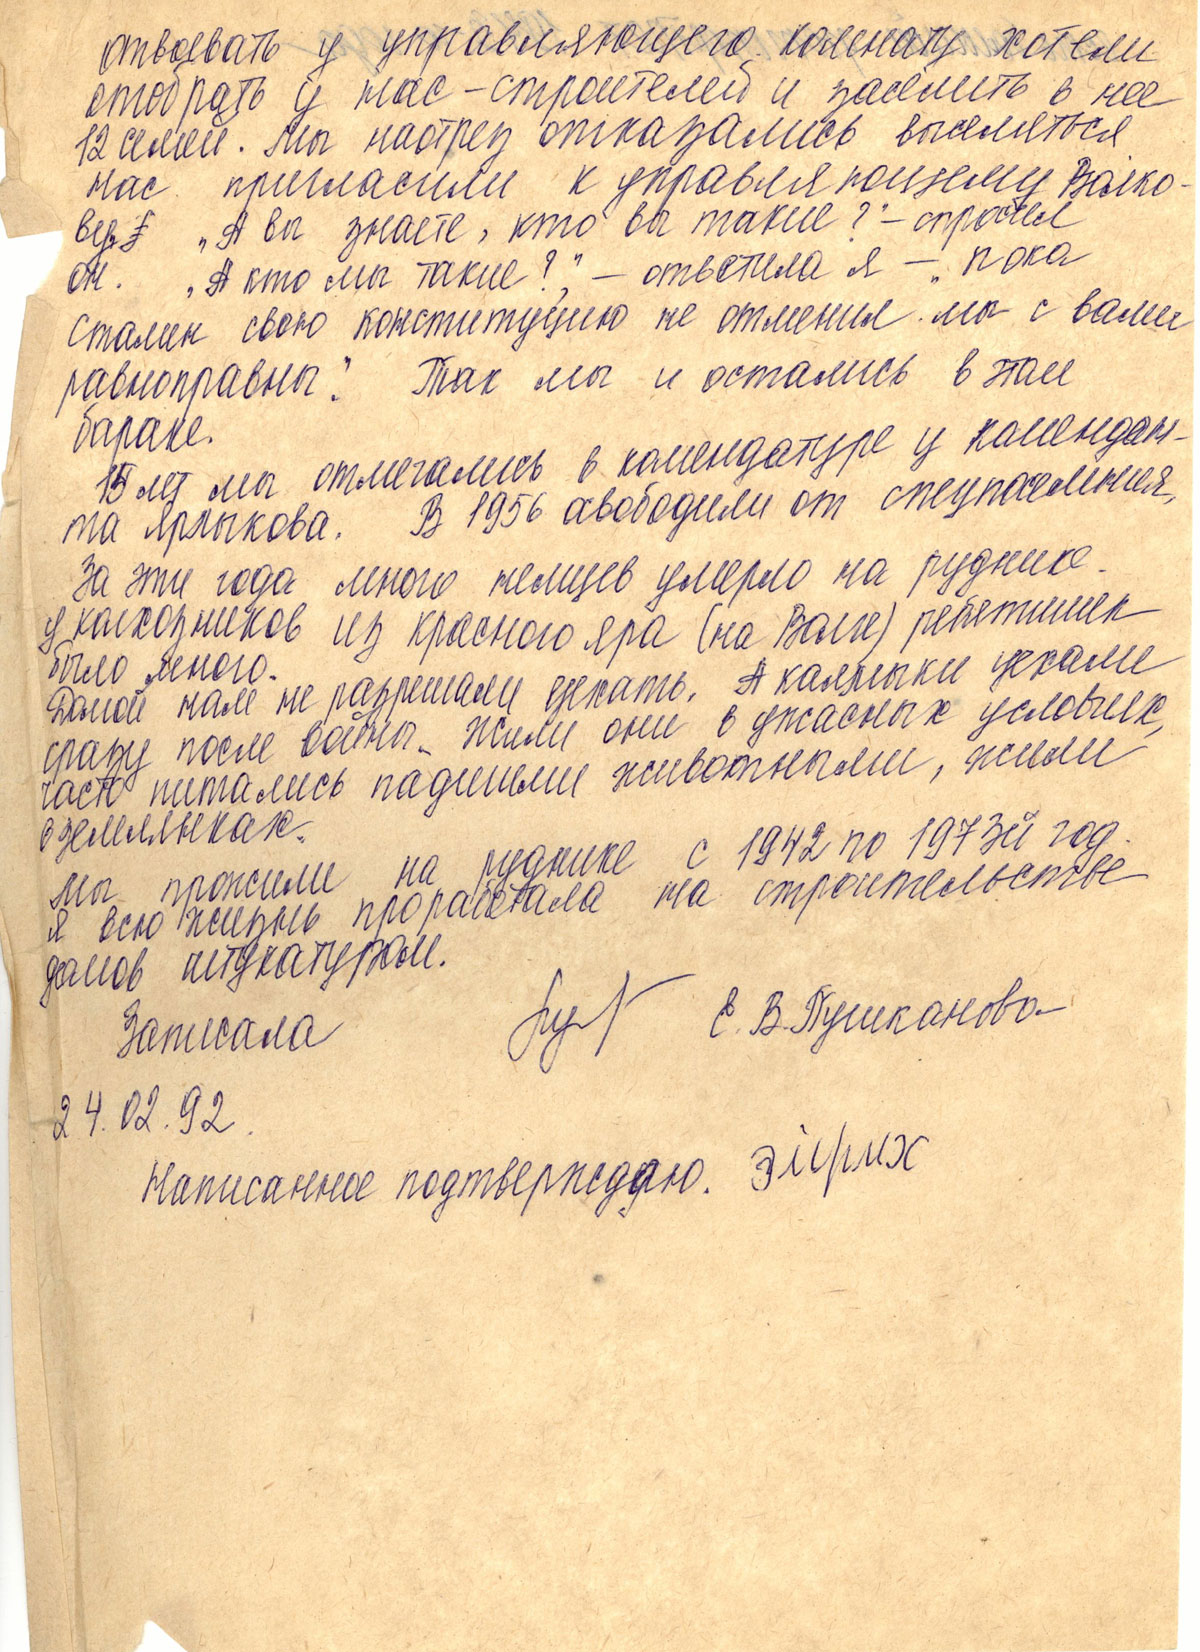 отвоевать у управляющего. Комнату хотели
отобрать у нас - строителей и заселить в нее
12 семей. Мы наотрез отказались выселяться
нас пригласили к управляющему Волко-
„А вы знаете, кто вы такие?" - спросил
он. „А кто мы такие?", - ответила я - „пока
Сталин свою конституцию не отменил мы с вами
равноправны". Так мы и остались в этом
бараке.
15 лет мы отмечались в комендатуре у комендан-
та Ярлыкова. В 1956 освободили от спецпоселения,
За эти года много немцев умерло на руднике.
У колхозников из красного яра (на Волге) ребятишек
было много.
Домой нам не разрешали уехать. А калмыки уехали
сразу после войны. Жили они в ужасных условиях,
часто питались падшими животными, жили
в землянках.
Мы прожили на руднике с 1942 по 1973й год.
Я всю жизнь проработала на строительстве
домов штукатуром.
Записала Е. В. Пушканова
24.02.92.
Написанное подтверждаю.